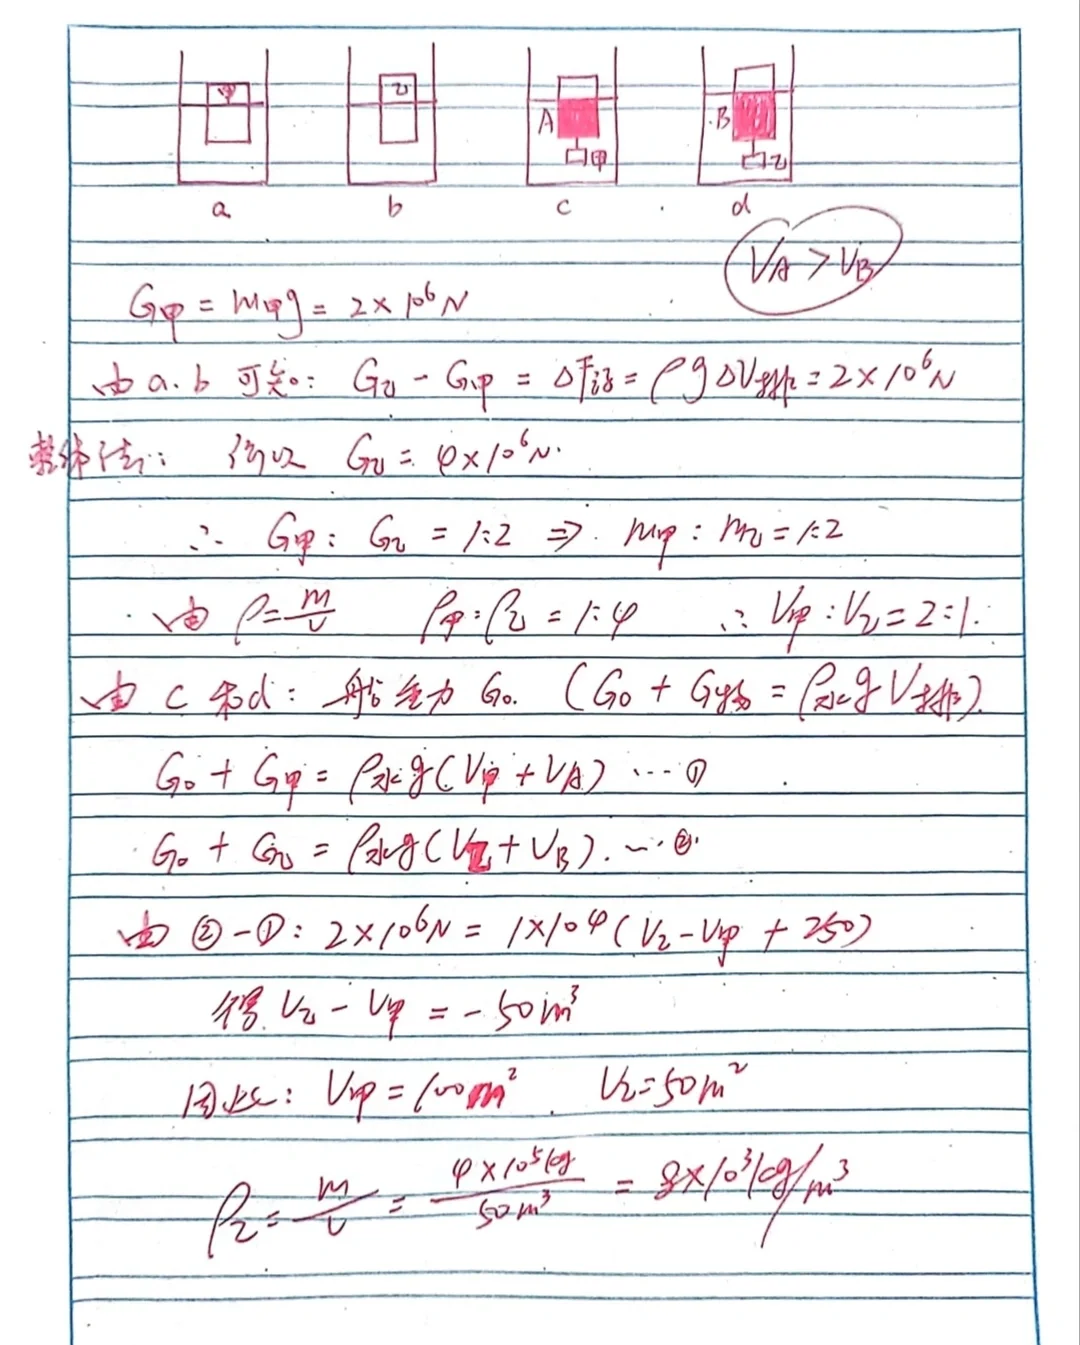 甲 乙 A 甲 B 乙
a b c d
VA > VB
G甲 = m甲g = 2×10⁶N
由a.b 可知: G乙 - G甲 = ΔF浮 = ρgΔV排 = 2×10⁶N
整体法: 所以 G乙 = 4×10⁶N.
∴ G甲 : G乙 = 1:2 ⇒ m甲 : m乙 = 1:2
由 ρ = m/v ρ甲:ρ乙 = 1:4 ∴ V甲:V乙 = 2:1.
由 c 和d: 船重力 G₀. (G₀ + G物 = ρ水gV排)
G₀ + G甲 = ρ水g(V甲 + VA) ...①
G₀ + G乙 = ρ水g(V乙 + VB). ...②.
由 ②-①: 2×10⁶N = 1×10⁴(V乙 - V甲 + 250)
得 V乙 - V甲 = -50m³
因此: V甲 = 100m² V乙 = 50m²
ρ乙 = m/v = 4×10⁵kg/50m³ = 8×10³kg/m³